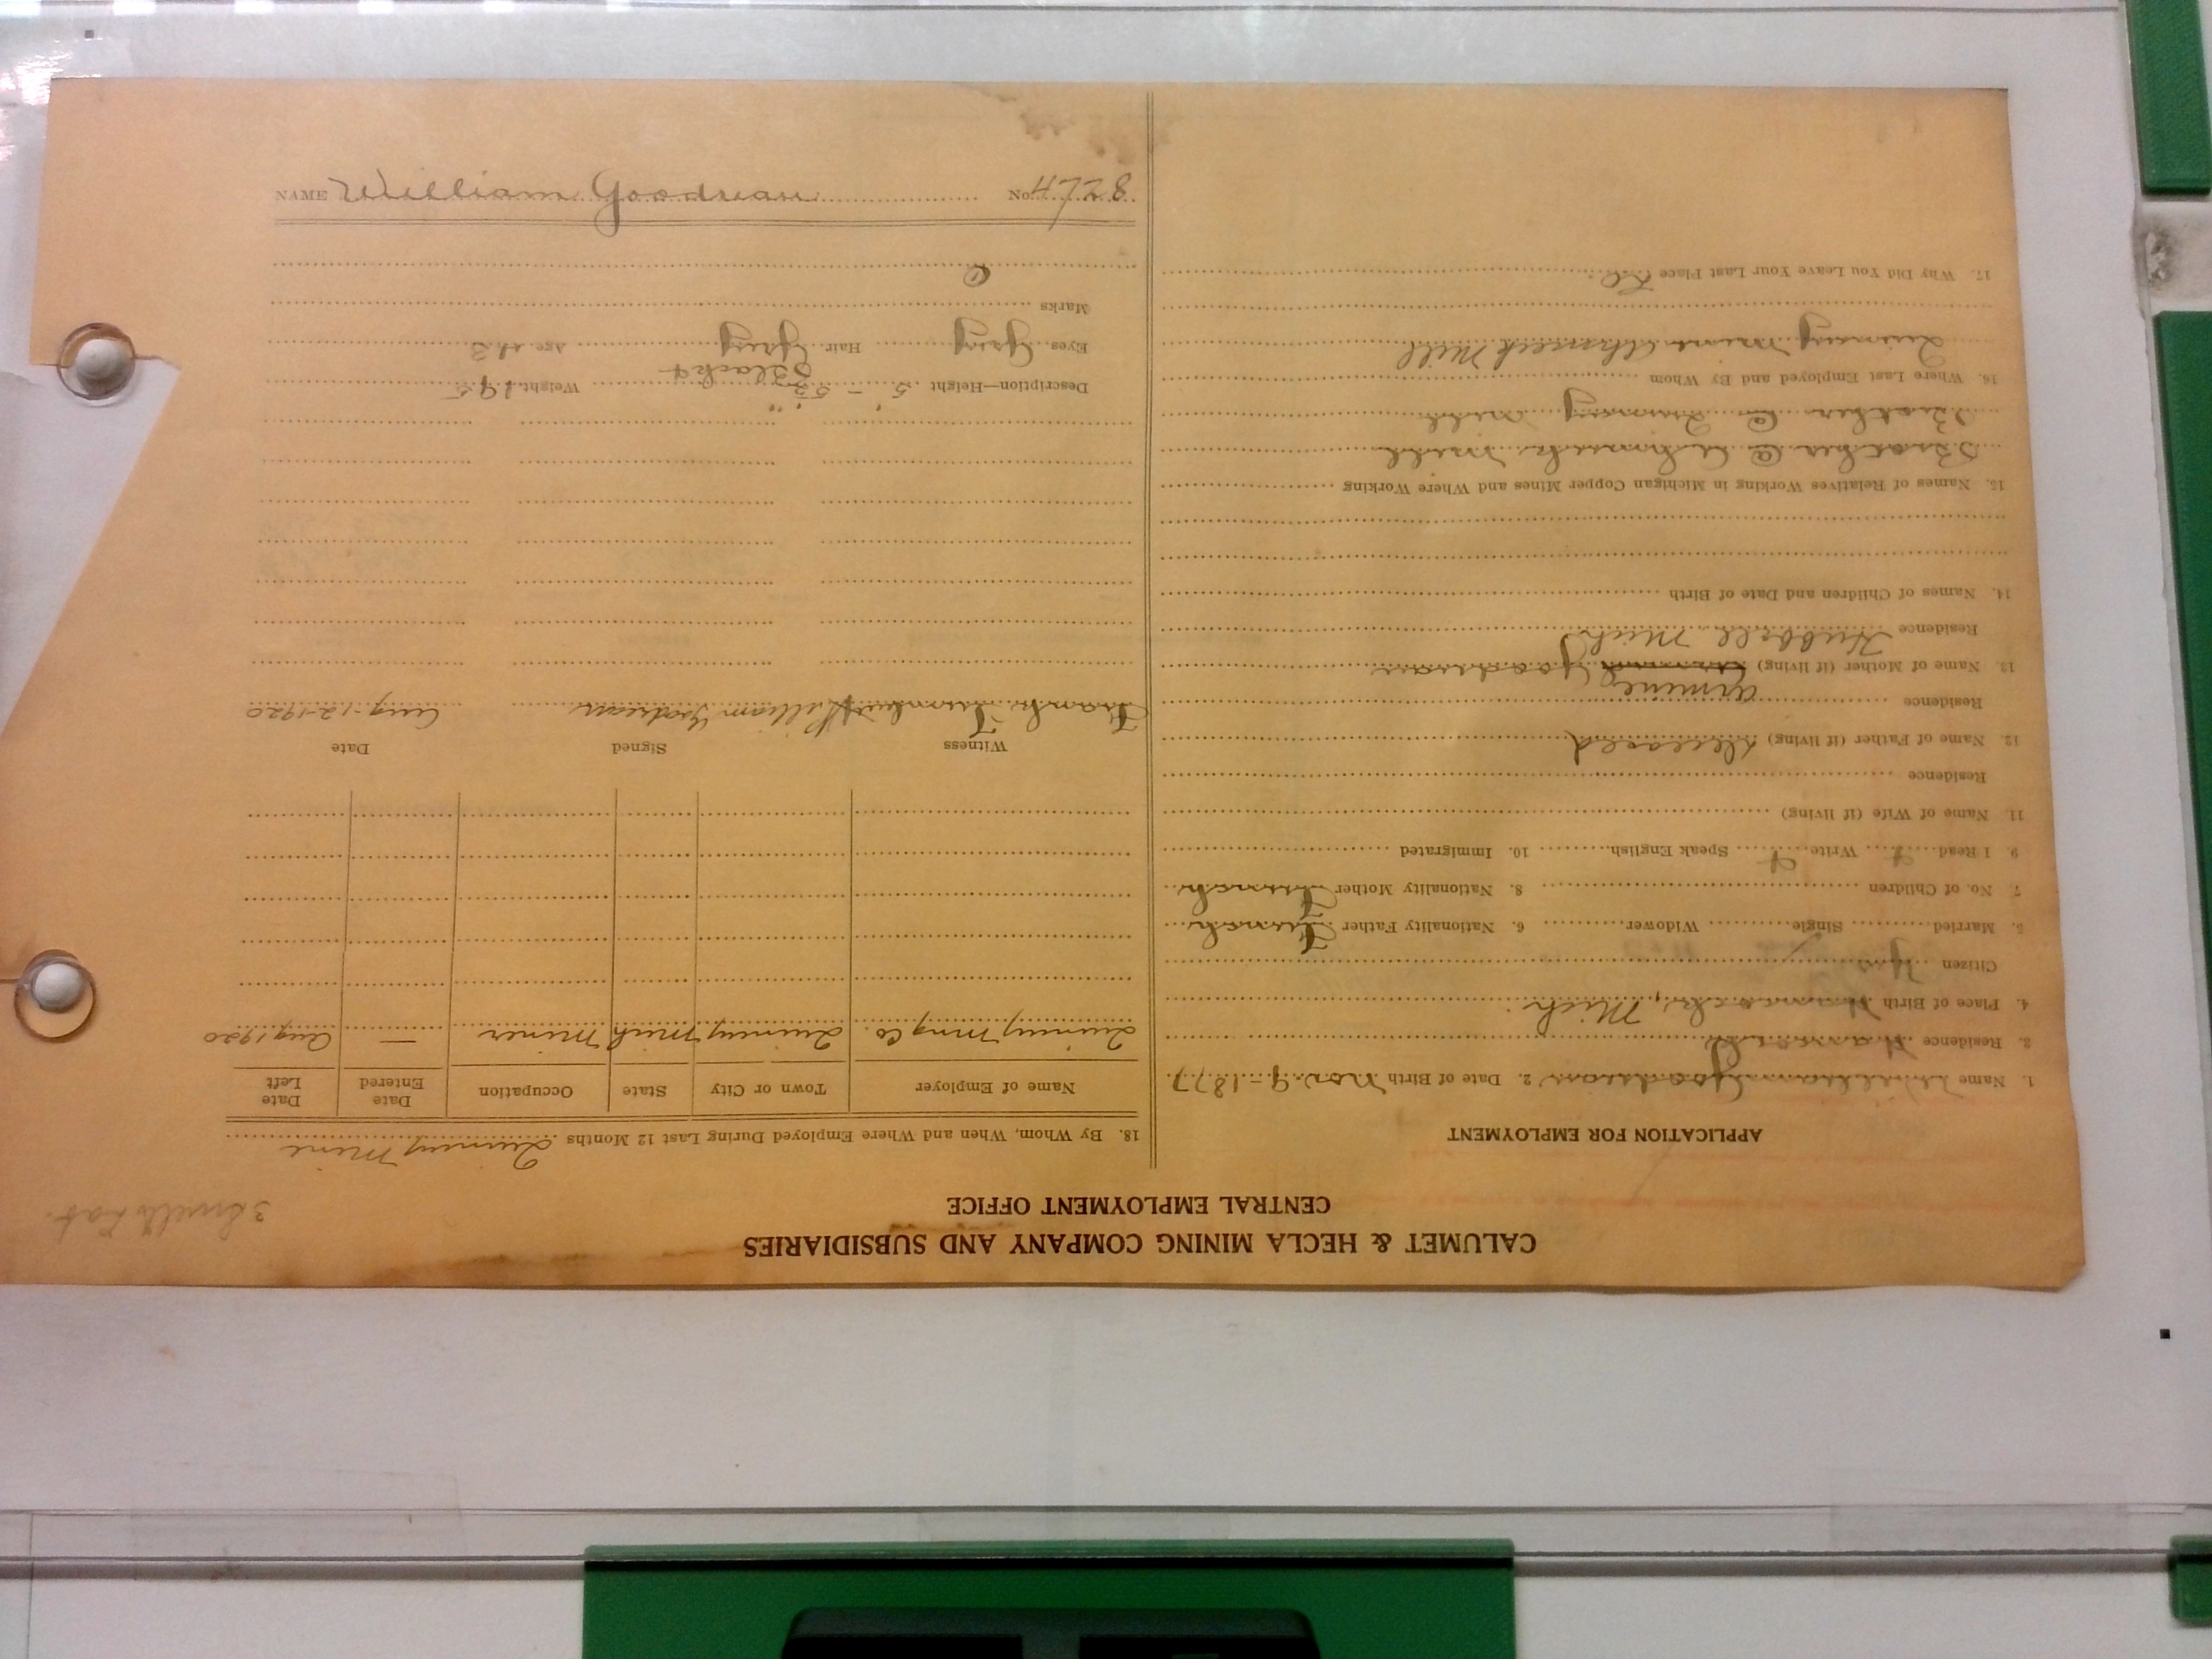 CALUMET & HECLA MINING COMPANY AND SUBSIDIARIES
CENTRAL EMPLOYMENT OFFICE
APPLICATION FOR EMPLOYMENT
1. Name William Goodreau 2. Date of Birth Nov. 9-1877
3. Residence Hancock
4. Place of Birth Hancock, Mich.
Citizen Yes
5. Married Single / Widower 6. Nationality Father French
7. No. of Children 8. Nationality Mother French
9. I Read Write Speak English 10. Immigrated
11. Name of Wife (if living)
Residence
12. Name of Father (if living) Deceased
Residence
13. Name of Mother (if living) Goodreau
Residence Hubbell Mich
14. Names of Children and Date of Birth
15. Names of Relatives Working in Michigan Copper Mines and Where Working
Brother @ Ahmeek Mill
Brother @ Quincy Mill
16. Where Last Employed and By Whom
Quincy Mine Ahmeek Mill
17. Why Did You Leave Your Last Place
18. By Whom, When and Where Employed During Last 12 Months Quincy Mine
Name of Employer Town or City State Occupation Date Entered Date Left
Quincy Mng Co. Quincy Mich Miner — Aug 1920
Witness Signed Date
Frank William Goodreau Aug-12-1920
Description—Height 5' Weight 195
Black &
Eyes Grey Hair Grey Age 42
Marks
NAME William Goodreau No. 4728